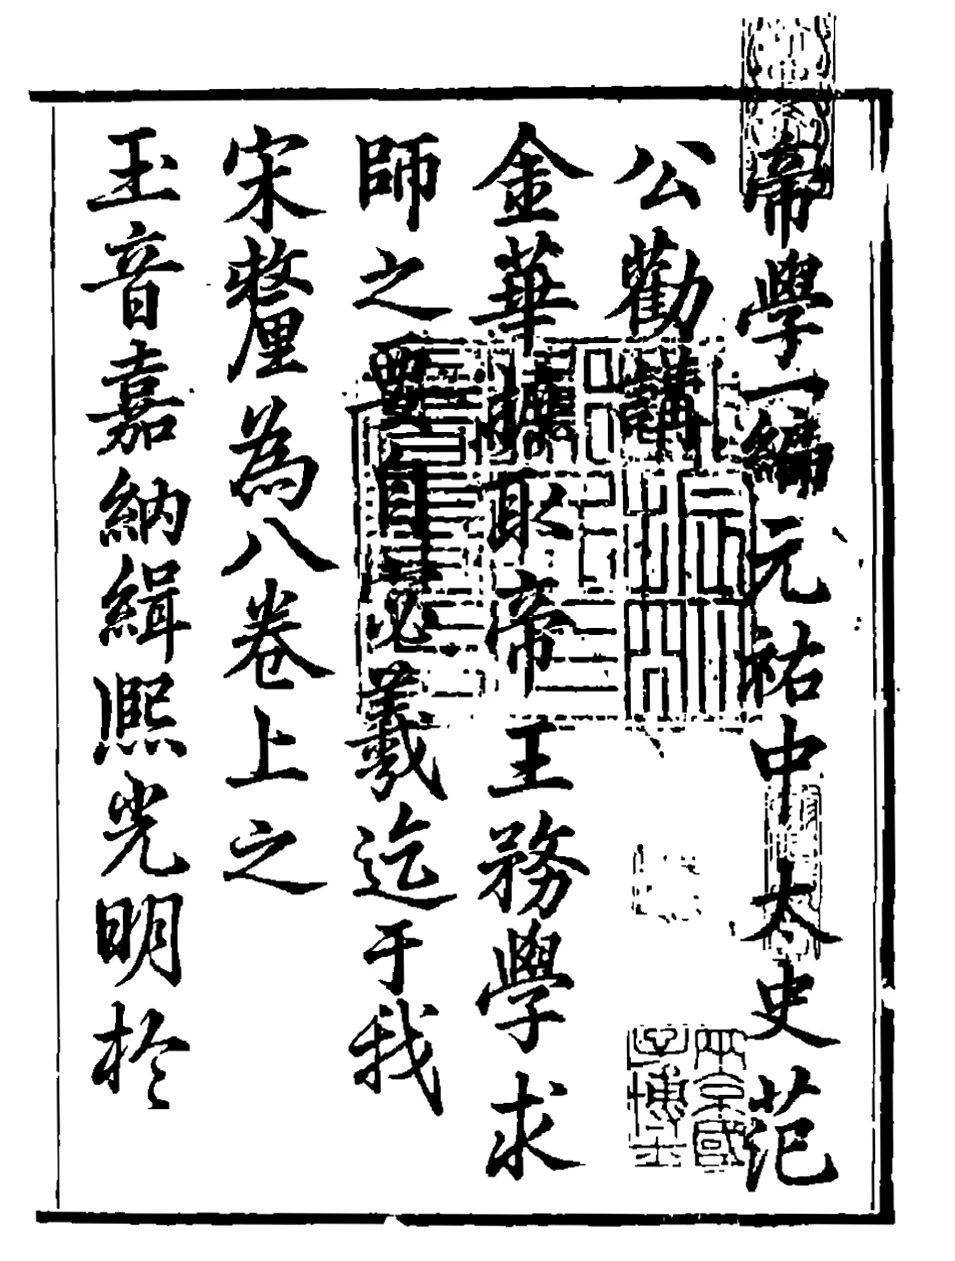 帝學一編元祐中太史范
公勸講
金華攟取帝王務學求
師之要自宓羲迄于我
宋釐為八卷上之
玉音嘉納緝熙光明於